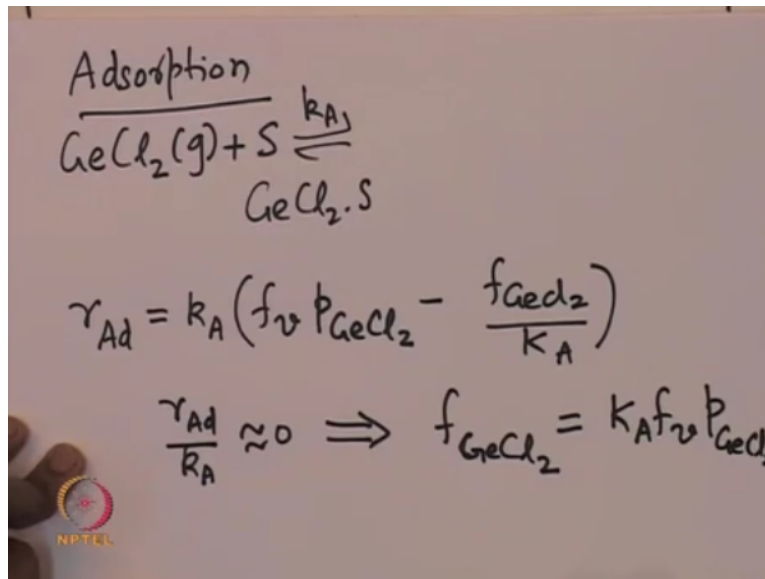 Adsorption
GeCl₂(g) + S ⇌ k_A
GeCl₂.S
r_Ad = k_A (f_v p_GeCl₂ − f_GeCl₂ / K_A)
r_Ad / k_A ≈ 0 ⟹ f_GeCl₂ = K_A f_v p_GeCl
NPTEL